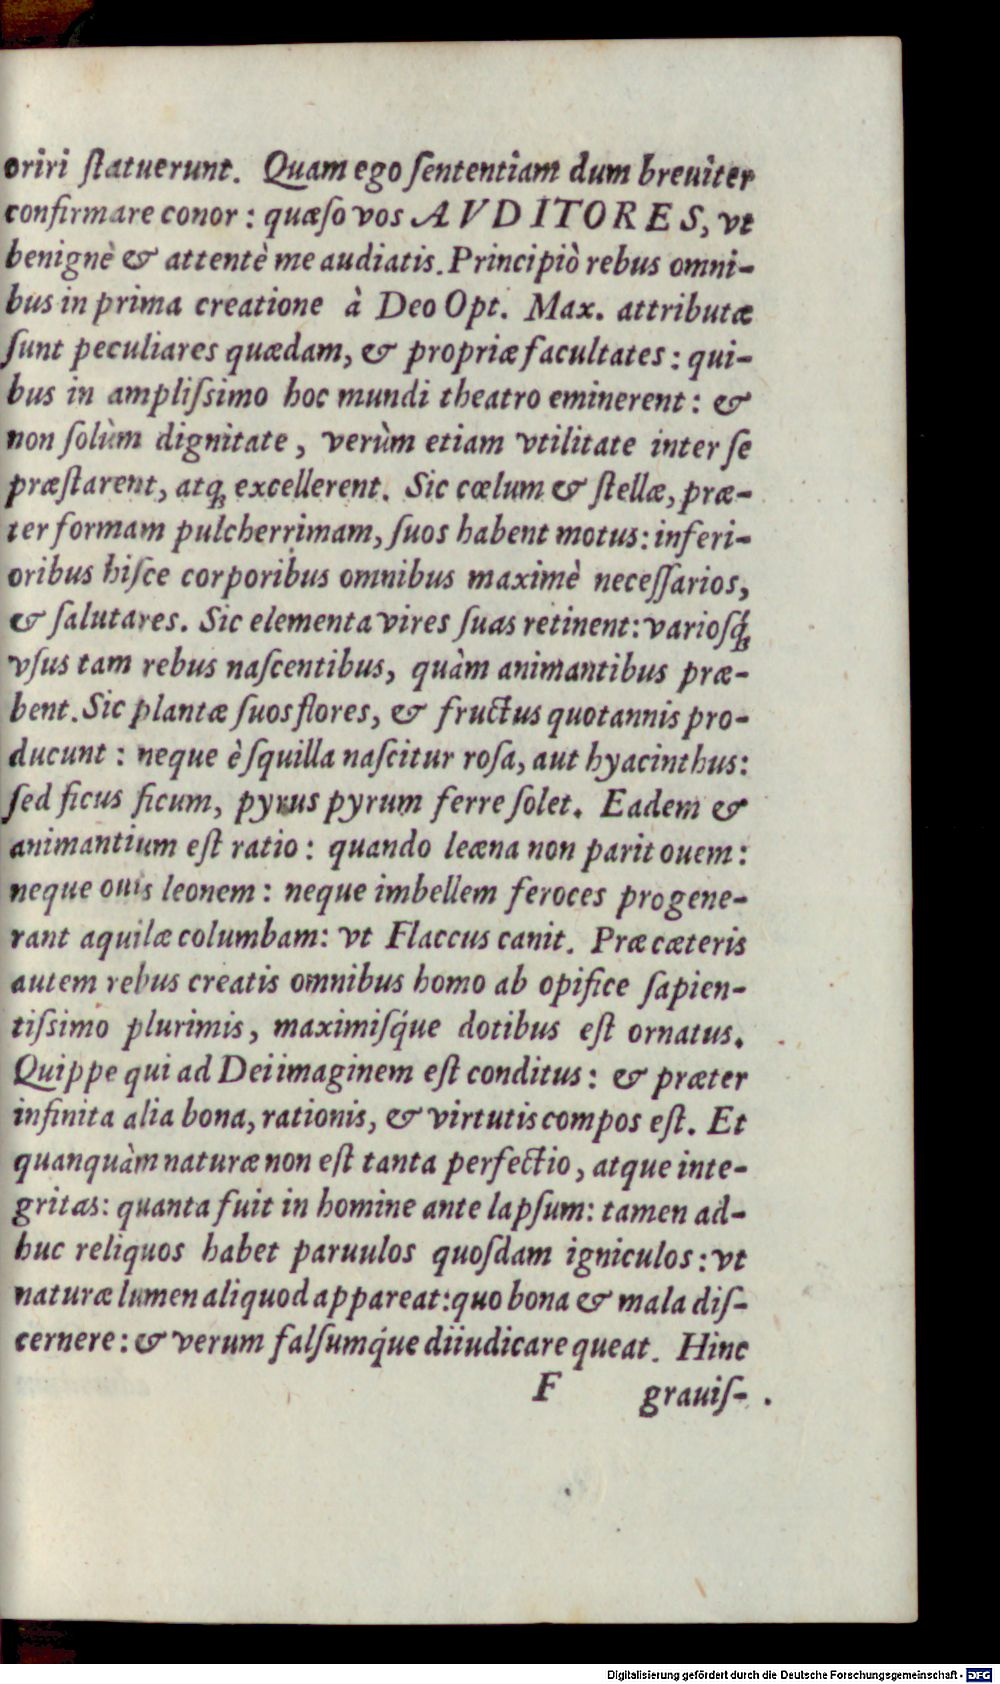 oriri ſtatuerunt. Quam ego ſententiam dum breuiter
confirmare conor : quæſo vos AVDITORES, vt
benignè & attentè me audiatis. Principiò rebus omni-
bus in prima creatione à Deo Opt. Max. attributæ
ſunt peculiares quædam, & propriæ facultates : qui-
bus in ampliſsimo hoc mundi theatro eminerent : &
non ſolùm dignitate , verùm etiam vtilitate inter ſe
præſtarent, atq́ꝫ excellerent. Sic cœlum & ſtellæ, præ-
ter formam pulcherrimam, ſuos habent motus : inferi-
oribus hiſce corporibus omnibus maximè neceſſarios,
& ſalutares. Sic elementa vires ſuas retinent : varioſq́ꝫ
vſus tam rebus naſcentibus, quàm animantibus præ-
bent. Sic plantæ ſuos flores, & fructus quotannis pro-
ducunt : neque è ſquilla naſcitur roſa, aut hyacinthus:
ſed ficus ficum, pyrus pyrum ferre ſolet. Eadem &
animantium eſt ratio : quando leæna non parit ouem :
neque ouis leonem : neque imbellem feroces progene-
rant aquilæ columbam: vt Flaccus canit. Præ cæteris
autem rebus creatis omnibus homo ab opifice ſapien-
tiſsimo plurimis, maximiſq́ue dotibus eſt ornatus.
Quippe qui ad Dei imaginem eſt conditus : & præter
infinita alia bona, rationis, & virtutis compos eſt. Et
quanquàm naturæ non eſt tanta perfectio, atque inte-
gritas: quanta fuit in homine ante lapſum: tamen ad-
huc reliquos habet paruulos quoſdam igniculos : vt
naturæ lumen aliquod appareat: quo bona & mala diſ-
cernere : & verum falſumq́ue diiudicare queat. Hinc
F grauiſ-
Digitalisierung gefördert durch die Deutsche Forschungsgemeinschaft - DFG